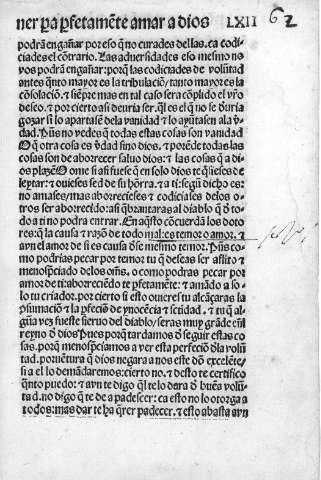 ner pa pſetamẽte amar a dios LXII 62
podrã engañar por eſo q̃ no curades dellas. ca codi-
ciades el cõtrario. Las aduerſidades eſo meſmo no
vos podrã engañar: porq̃ las codiciades de volũtad
antes quãto mayor es la tribulaciõ/ tanto mayor es la
cõſolaciõ. ⁊ ſiẽpre mas en tal caſo ſera cõplido el vr̃o
deſeo. ⁊ por cierto aſi deuria ſer. q̃l es el q̃ no ſe duria
gozar ſi lo apartaſẽ dela vanidad ⁊ lo ayũtaſen ala v̾-
dad. Pues no vedes q̃ todas eſtas coſas ſon vanidad
O q̃ otra coſa es v̾dad ſino dios. ⁊ porẽde todas las
coſas ſon de aborrecer ſaluo dios: ⁊ las coſas q̃ a di-
os plazẽ O me ſi aſi fueſe q̃ en ſolo dios te q̃ſieſes de
leytar: ⁊ ouieſes ſed de ſu hõrra. ⁊ a ti: ſegũ dicho es:
no amaſes/ mas aborrecieſes ⁊ codiciaſes delos o-
tros ſer aborrecido: aſi q̃brantaras al diablo q̃ d̃ to-
do a ti no podra entrar. En aq̃ſto cõcuerdã los doto
res: q̃ la cauſa ⁊ razõ de todo mal: es temor o amor. ⁊
ayn el amor de ſi es cauſa d̃ſe meſmo temor. Pues co-
mo podrias pecar por temor tu q̃ deſeas ſer aflito ⁊
menoſp̃ciado delos oñs. o como podras pecar por
amor de ti: aborreciẽdo te p̃fetamẽte: ⁊ amãdo a ſo-
lo tu criador. por cierto ſi eſto ouieres tu alcãçaras la
p̃ſumaciõ ⁊ la p̃feciõ de ynocẽcia ⁊ ſctidad. ⁊ tu q̃ al-
gũa vez fueſte ſieruo del diablo/ ſeras muy grãde enl
reyno d̃ dios Pues porq̃ tardamos d̃ ſeguir eſtas co-
ſas. porq̃ menoſp̃ciamos a ver eſta perfeciõ d̃la volũ
tad. por uẽtura q̃ dios negara a nos eſte dõ excelẽte/
ſi a el lo demãdaremos: cierto no. ⁊ deſto te certifico
quãto puedo: ⁊ ayn te digo q̃l te lo dara d̃ buẽa volũ
tad. no digo q̃ te de a padeſcer: ca eſto no lo otorga a
todos: mas dar te ha q̃rer padecer. ⁊ eſto abaſta ayn